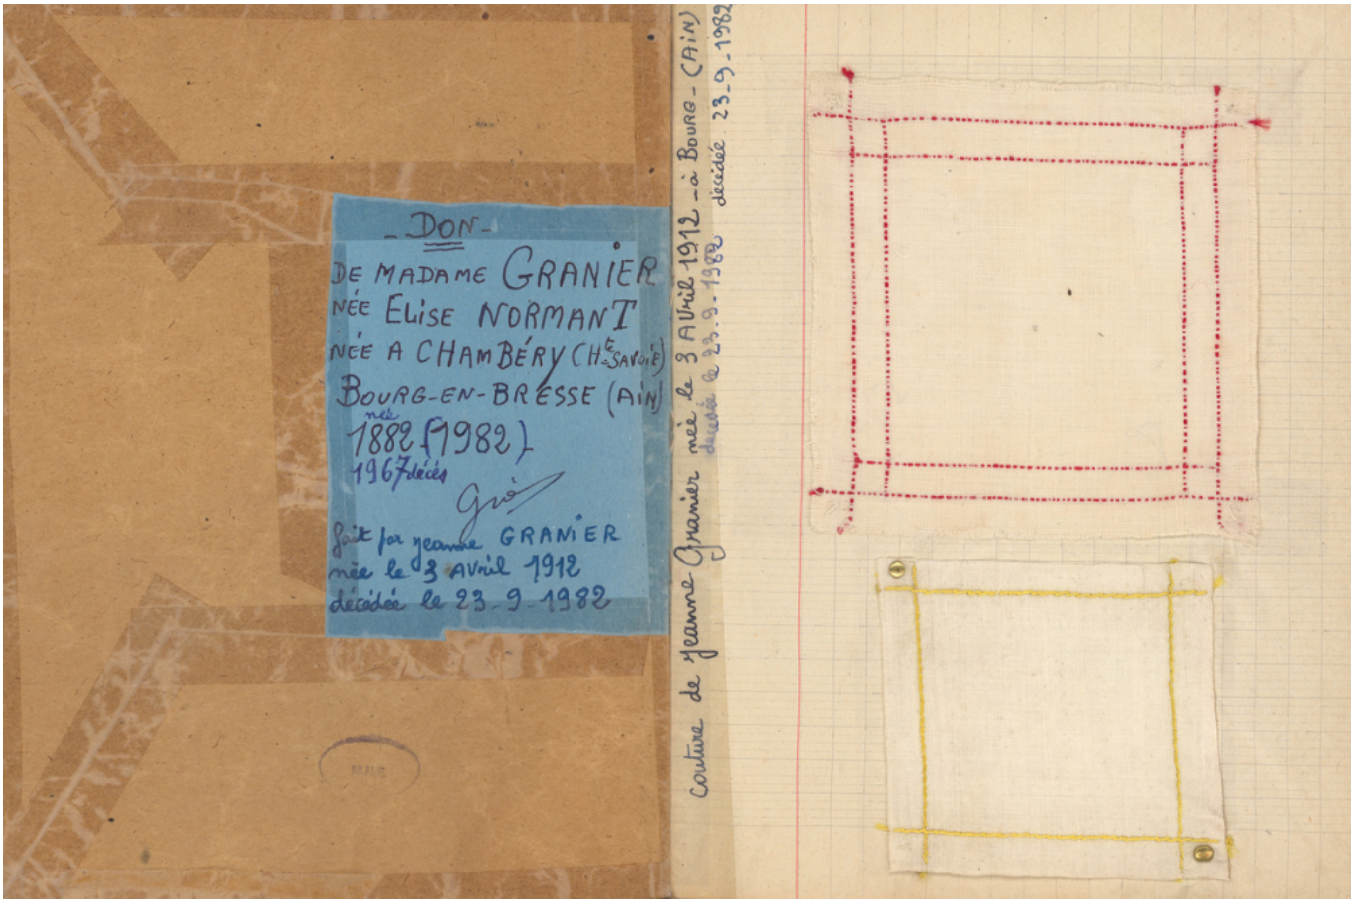 - DON -
DE MADAME GRANIER
NÉE ELISE NORMANT
NÉE A CHAMBÉRY (HTE SAVOIE)
BOURG-EN-BRESSE (AIN)
née
1882 - (1982)
1967 décès
fait par jeanne GRANIER
née le 3 AVril 1912
décédée le 23-9-1982
couture de jeanne Granier née le 3 AVril 1912 - à BOURG - (AIN)
décédée le 23.9.1982 décédée 23-9-1982